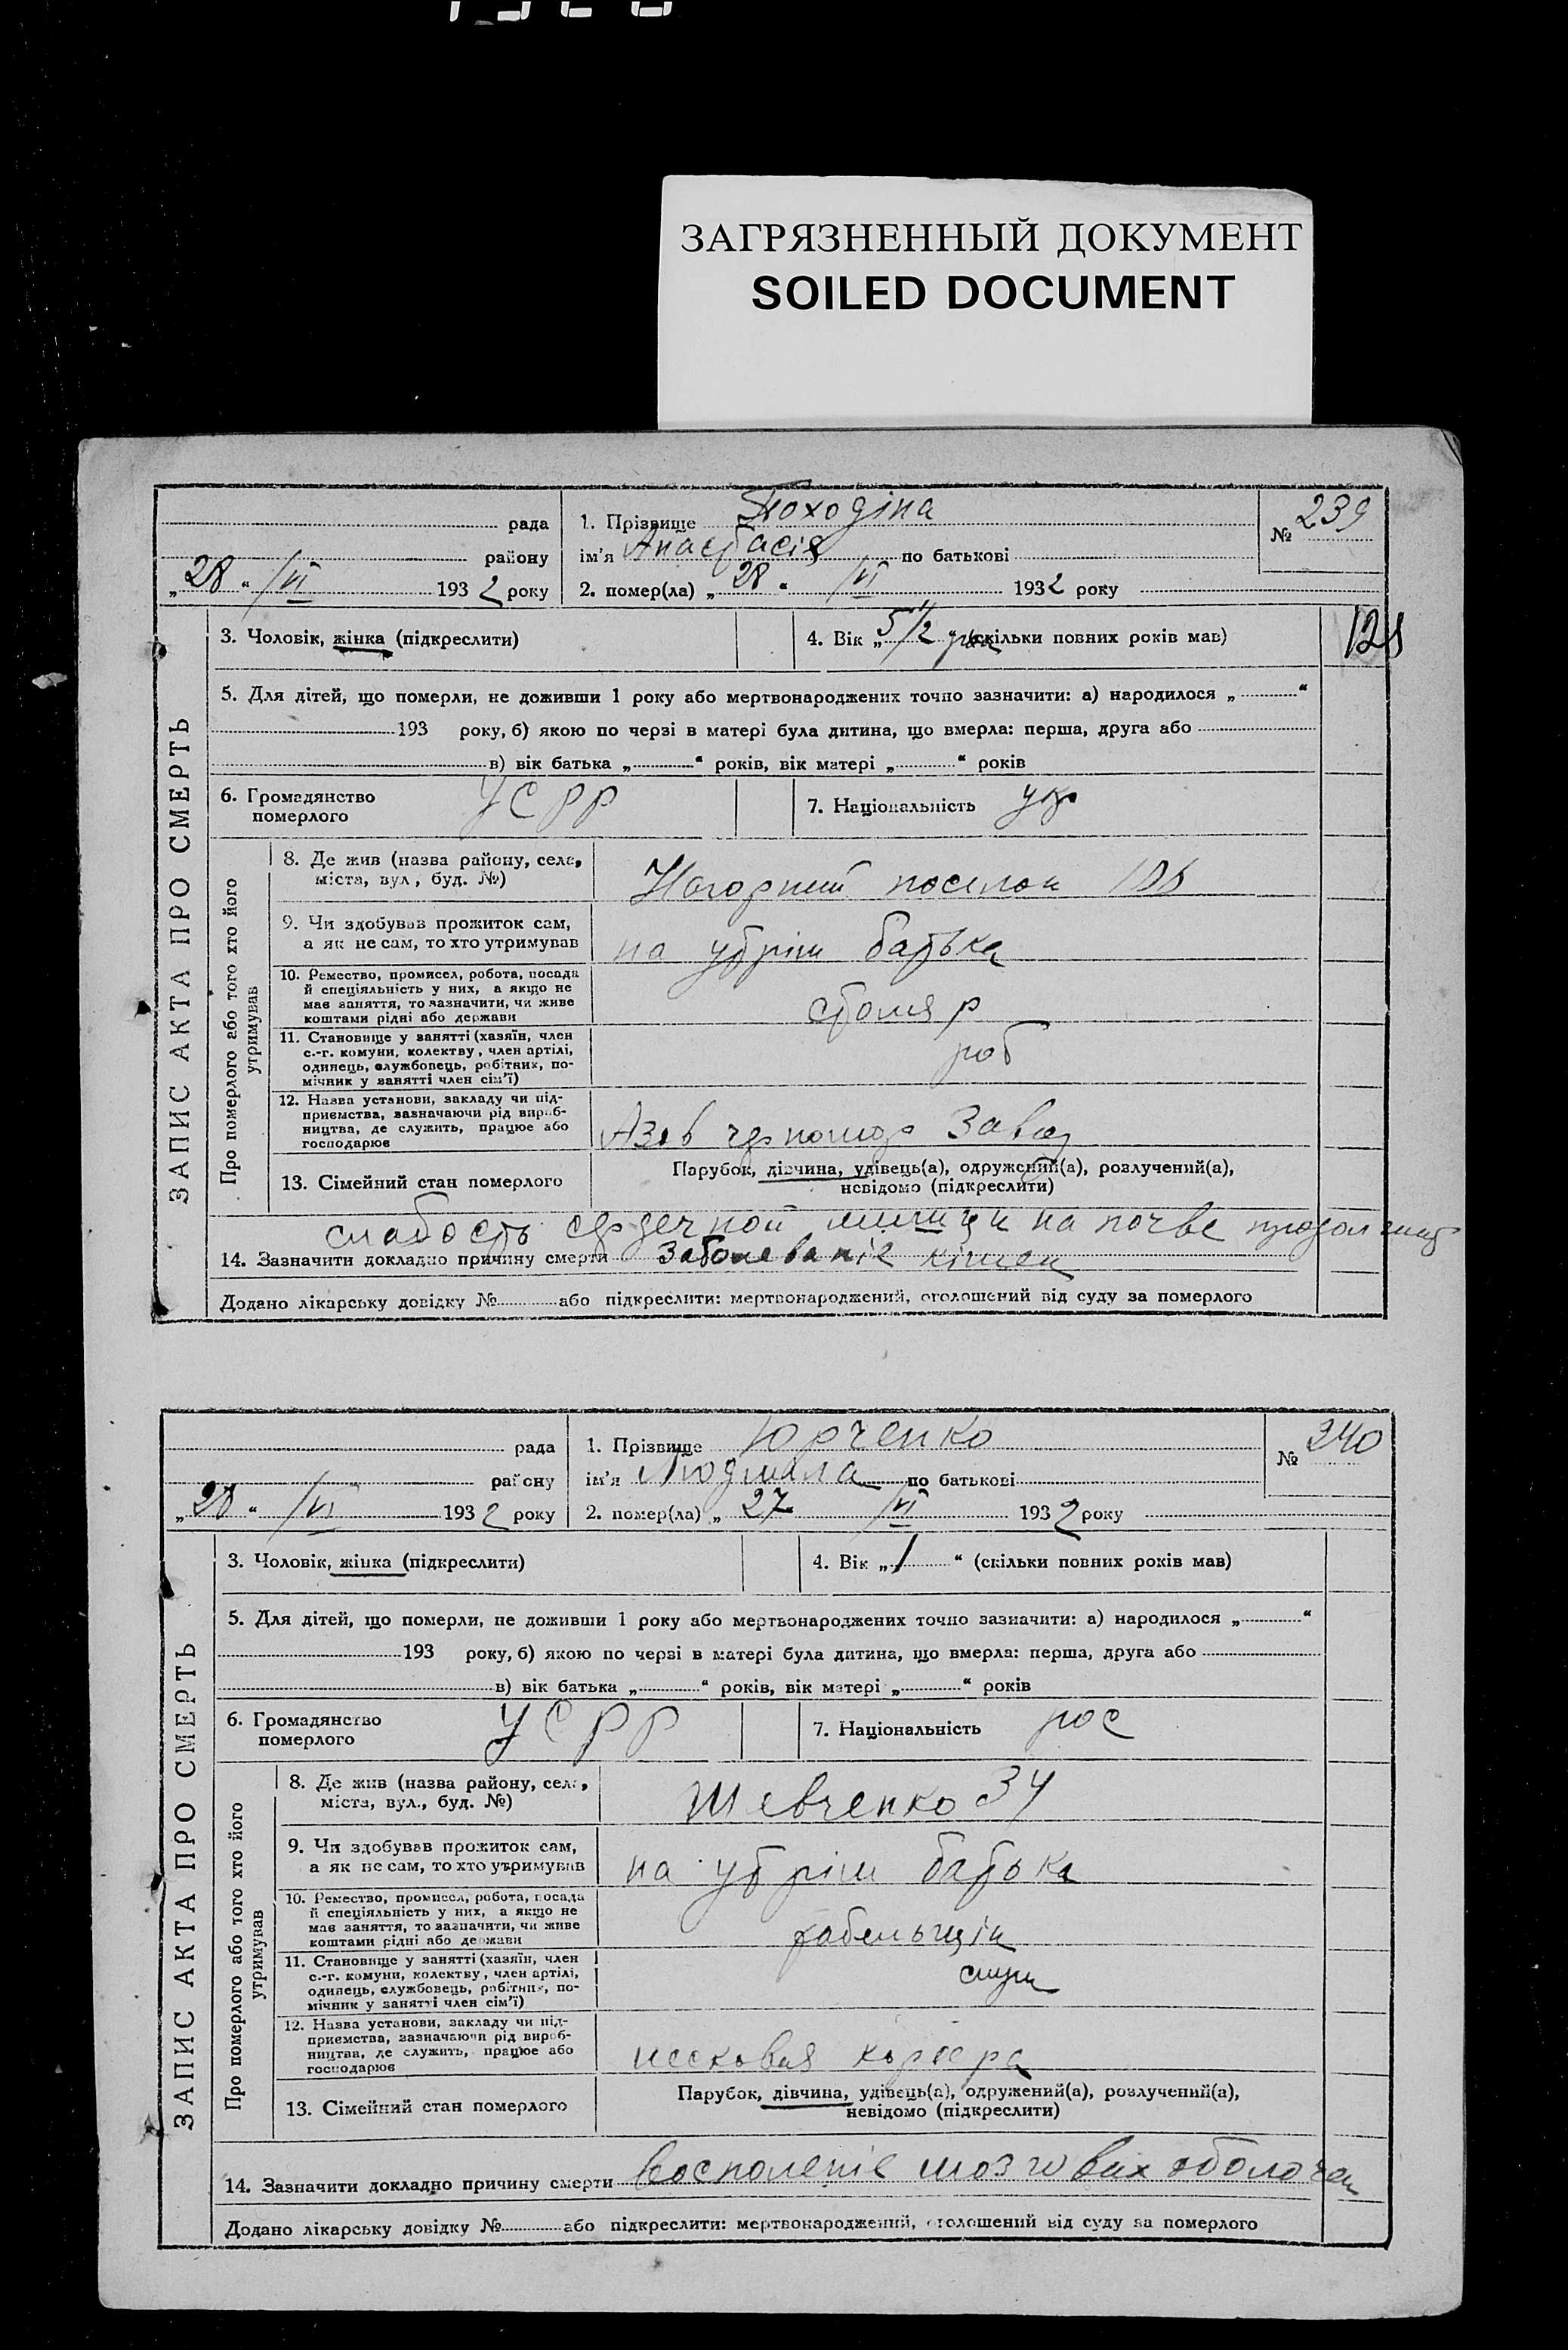 ЗАГРЯЗНЕННЫЙ ДОКУМЕНТ
SOILED DOCUMENT
ЗАПИС АКТА ПРО СМЕРТЬ
рада
району
„28“ /VI 1932 року
1. Прізвище Походіна
ім'я Анастасія по батькові
2. помер(ла) „28“ /VI 1932 року
№ 239
3. Чоловік, жінка (підкреслити)
4. Вік „5 1/2 (скільки повних років мав)
5. Для дітей, що померли, не доживши 1 року або мертвонароджених точно зазначити: а) народилося „ “
193 року, б) якою по черзі в матері була дитина, що вмерла: перша, друга або
в) вік батька „ “ років, вік матері „ “ років
6. Громадянство
померлого
УСРР
7. Національність укр
Про померлого або того хто його
утримував
8. Де жив (назва району, села,
міста, вул., буд. №)
Нагорний поселок
9. Чи здобував прожиток сам,
а як не сам, то хто утримував
на утрім батька
10. Ремество, промисел, робота, посада
й спеціяльність у них, а якщо не
має заняття, то зазначити, чи живе
коштами рідні або держави
столяр
11. Становище у занятті (хазяїн, член
с.-г. комуни, колективу, член артілі,
одинець, службовець, робітник, по-
мічник у занятті член сім'ї)
роб
12. Назва установи, закладу чи під-
приємства, зазначаючи рід вироб-
ництва, де служить, працює або
господарює
Азов черномор завод
13. Сімейний стан померлого
Парубок, дівчина, удівець(а), одружений(а), розлучений(а),
невідомо (підкреслити)
слабость сердечной мишци на почве продолжит
14. Зазначити докладно причину смерти заболеваніе кішек
Додано лікарську довідку № або підкреслити: мертвонароджений, оголошений від суду за померлого
ЗАПИС АКТА ПРО СМЕРТЬ
рада
району
„28“ /VI 1932 року
1. Прізвище Юрченко
ім'я Людмила по батькові
2. помер(ла) „27 /VI 1932 року
№ 240
3. Чоловік, жінка (підкреслити)
4. Вік „1“ (скільки повних років мав)
5. Для дітей, що померли, не доживши 1 року або мертвонароджених точно зазначити: а) народилося „ “
193 року, б) якою по черзі в матері була дитина, що вмерла: перша, друга або
в) вік батька „ “ років, вік матері „ “ років
6. Громадянство
померлого
УСРР
7. Національність рос
Про померлого або того хто його
утримував
8. Де жив (назва району, села,
міста, вул., буд. №)
Шевченко 34
9. Чи здобував прожиток сам,
а як не сам, то хто утримував
на утрім батька
10. Ремество, промисел, робота, посада
й спеціяльність у них, а якщо не
має заняття, то зазначити, чи живе
коштами рідні або держави
табельщік
11. Становище у занятті (хазяїн, член
с.-г. комуни, колективу, член артілі,
одинець, службовець, робітник, по-
мічник у занятті член сім'ї)
служ
12. Назва установи, закладу чи під-
приємства, зазначаючи рід вироб-
ництва, де служить, працює або
господарює
песковая карьера
13. Сімейний стан померлого
Парубок, дівчина, удівець(а), одружений(а), розлучений(а),
невідомо (підкреслити)
14. Зазначити докладно причину смерти восполеніе мозговых оболочек
Додано лікарську довідку № або підкреслити: мертвонароджений, оголошений від суду за померлого